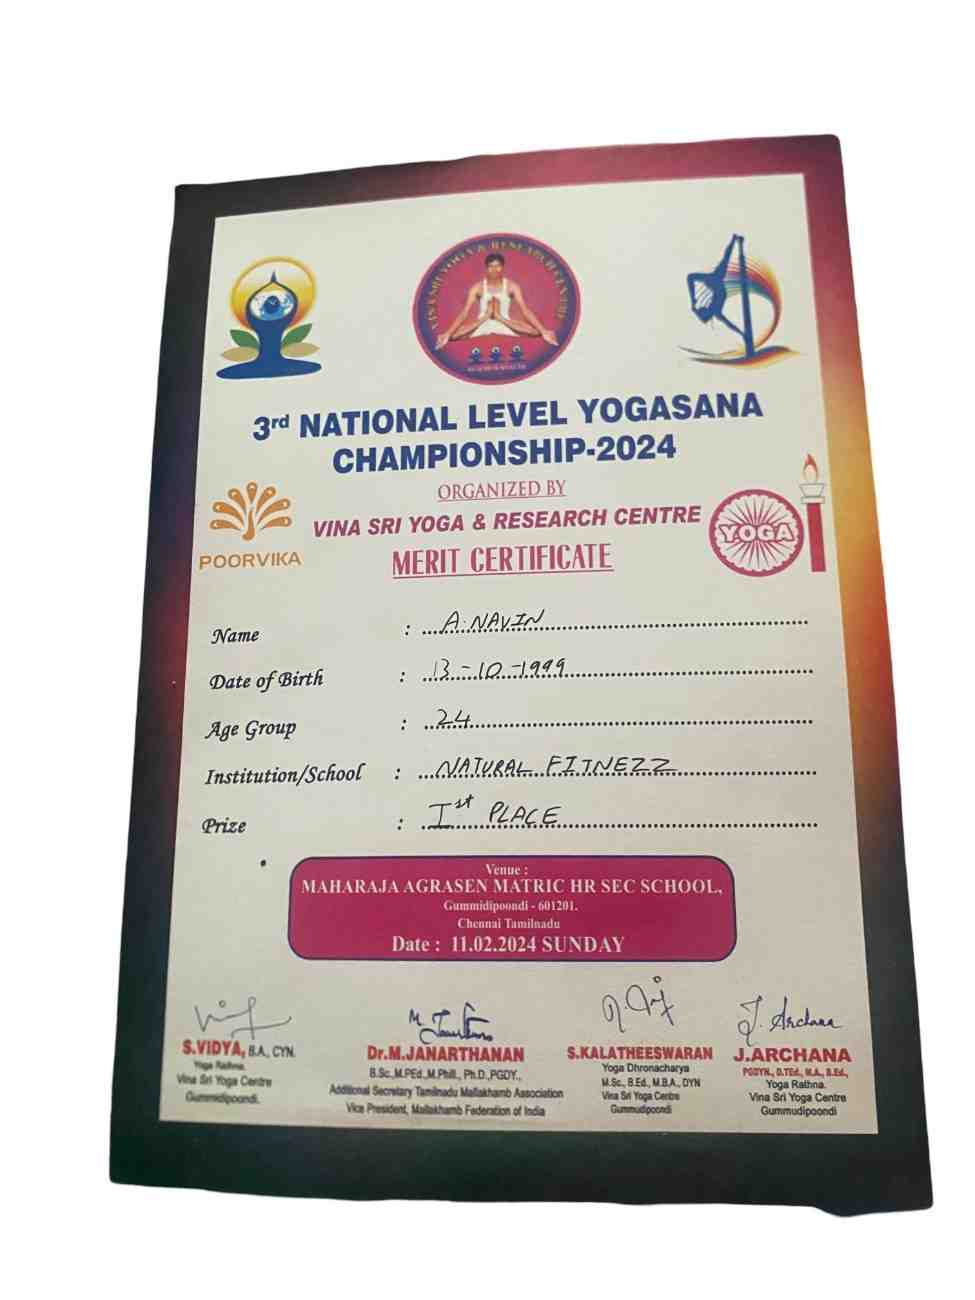 VINA SRI YOGA & RESEARCH CENTRE
3rd NATIONAL LEVEL YOGASANA
CHAMPIONSHIP-2024
ORGANIZED BY
VINA SRI YOGA & RESEARCH CENTRE
POORVIKA
YOGA
MERIT CERTIFICATE
Name : A. NAVIN
Date of Birth : 13-10-1999
Age Group : 24
Institution/School : NATURAL FITNEZZ
Prize : Ist PLACE
Venue :
MAHARAJA AGRASEN MATRIC HR SEC SCHOOL,
Gummidipoondi - 601201.
Chennai Tamilnadu
Date : 11.02.2024 SUNDAY
S.VIDYA, B.A., CYN.
Yoga Rathna.
Vina Sri Yoga Centre
Gummidipoondi.
M
Dr.M.JANARTHANAN
B.Sc.,M.PEd.,M.Phil., Ph.D.,PGDY.,
Additional Secretary Tamilnadu Mallakhamb Association
Vice President, Mallakhamb Federation of India
S.KALATHEESWARAN
Yoga Dhronacharya
M.Sc., B.Ed., M.B.A., DYN
Vina Sri Yoga Centre
Gummudipoondi
J. Archana
J.ARCHANA
PGDYN., D.TEd., M.A., B.Ed.,
Yoga Rathna.
Vina Sri Yoga Centre
Gummudipoondi